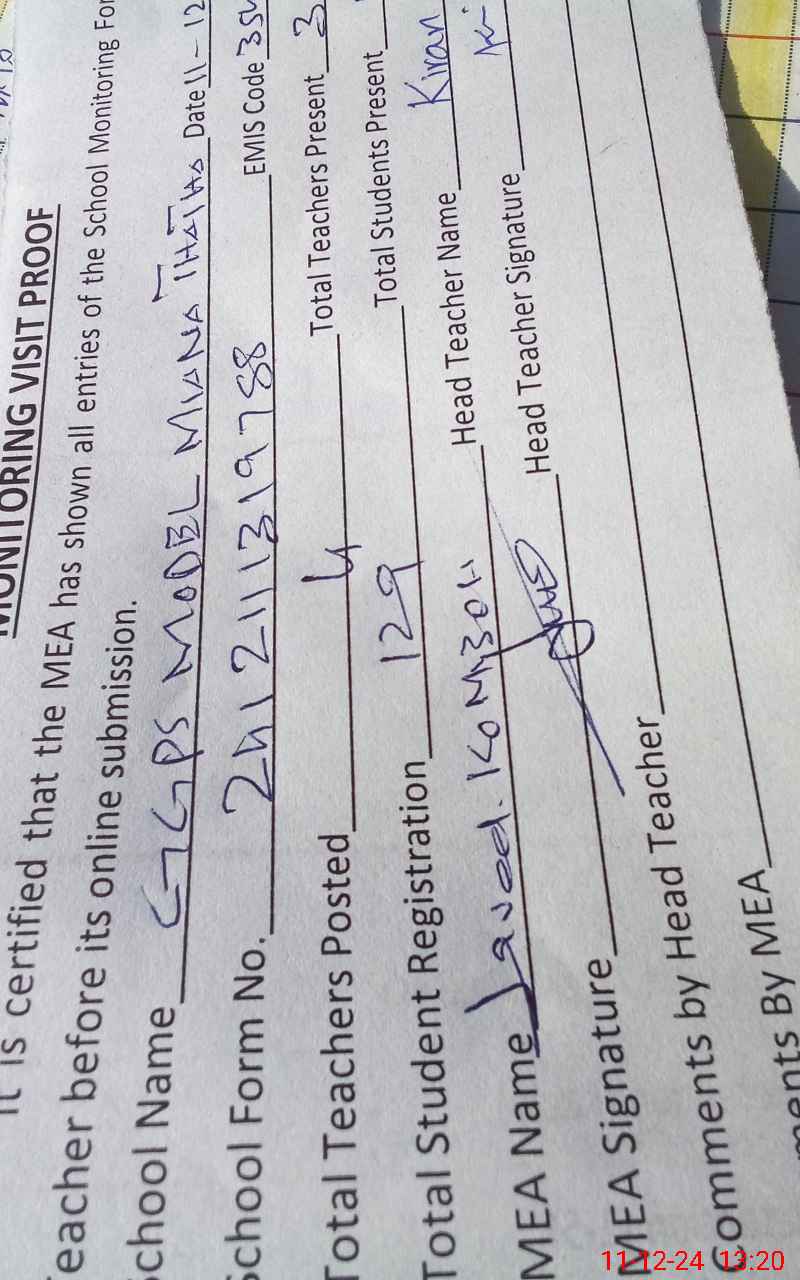 MONITORING VISIT PROOF
It is certified that the MEA has shown all entries of the School Monitoring For
Teacher before its online submission.
School Name GGPS MODEL MIANA THATHA Date 11-12
School Form No. 2412111319788 EMIS Code 354
Total Teachers Posted 4 Total Teachers Present 3
Total Student Registration 129 Total Students Present
MEA Name Javed. Head Teacher Name Kiran
MEA Signature Head Teacher Signature
Comments by Head Teacher
Comments By MEA
11-12-24 13:20